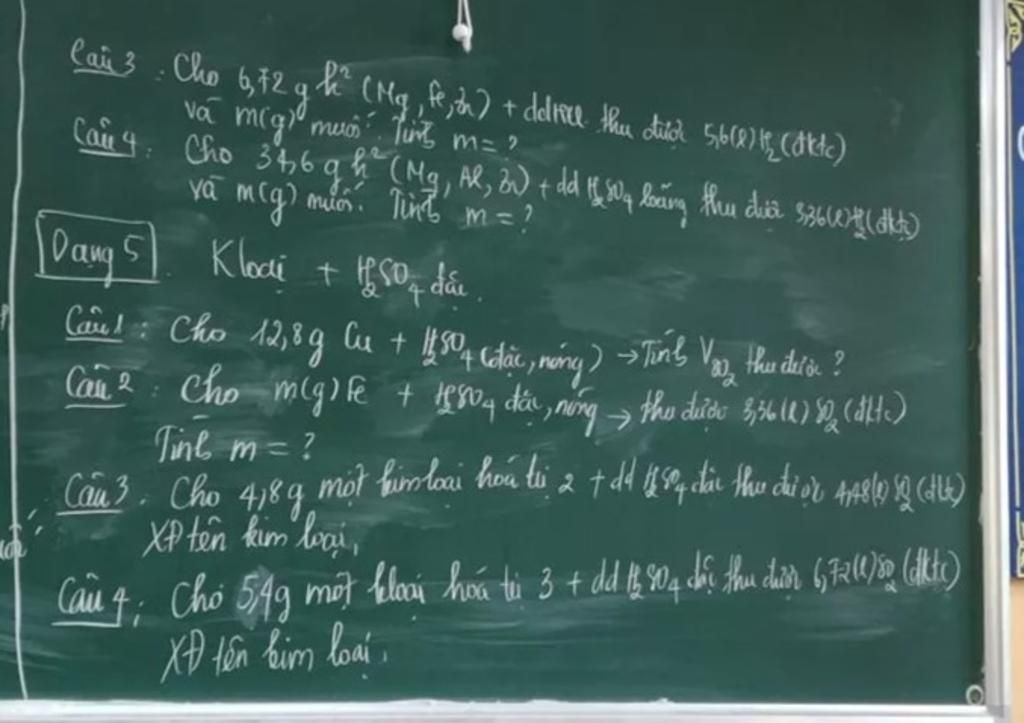 Câu 3: Cho 6,72 g h² (Mg, Fe, Zn) + dd HCl thu được 5,6(l) H₂ (đktc)
và m(g) muối. Tính m = ?
Câu 4: Cho 34,6 g h² (Mg, Al, Zn) + dd H₂SO₄ loãng thu được 3,36(l) H₂ (đktc)
và m(g) muối. Tính m = ?
Dạng 5. Kloại + H₂SO₄ đặc.
Câu 1: Cho 12,8g Cu + H₂SO₄ (đặc, nóng) → Tính V SO₂ thu được?
Câu 2: Cho m(g) Fe + H₂SO₄ đặc, nóng → thu được 3,36(l) SO₂ (đktc)
Tính m = ?
Câu 3. Cho 4,8g một kim loại hoá trị 2 + dd H₂SO₄ đặc thu được 4,48(l) SO₂ (đktc)
XĐ tên kim loại,
Câu 4: Cho 5,4g một kloại hoá trị 3 + dd H₂SO₄ đặc thu được 6,72(l) SO₂ (đktc)
XĐ tên kim loại.